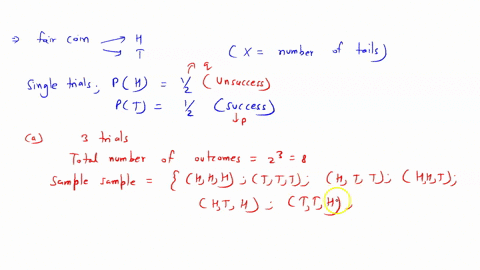 ⇒ fair coin → H
→ T
(X = number of tails)
Single trials; P(H) = 1/2 (unsuccess) → q
P(T) = 1/2 (success) → p
(a) 3 trials
Total number of outcomes = 2^3 = 8
Sample sample = { (H,H,H) ; (T,T,T) ; (H,T,T) ; (H,H,T) ;
(H,T,H) ; (T,T,H) ,